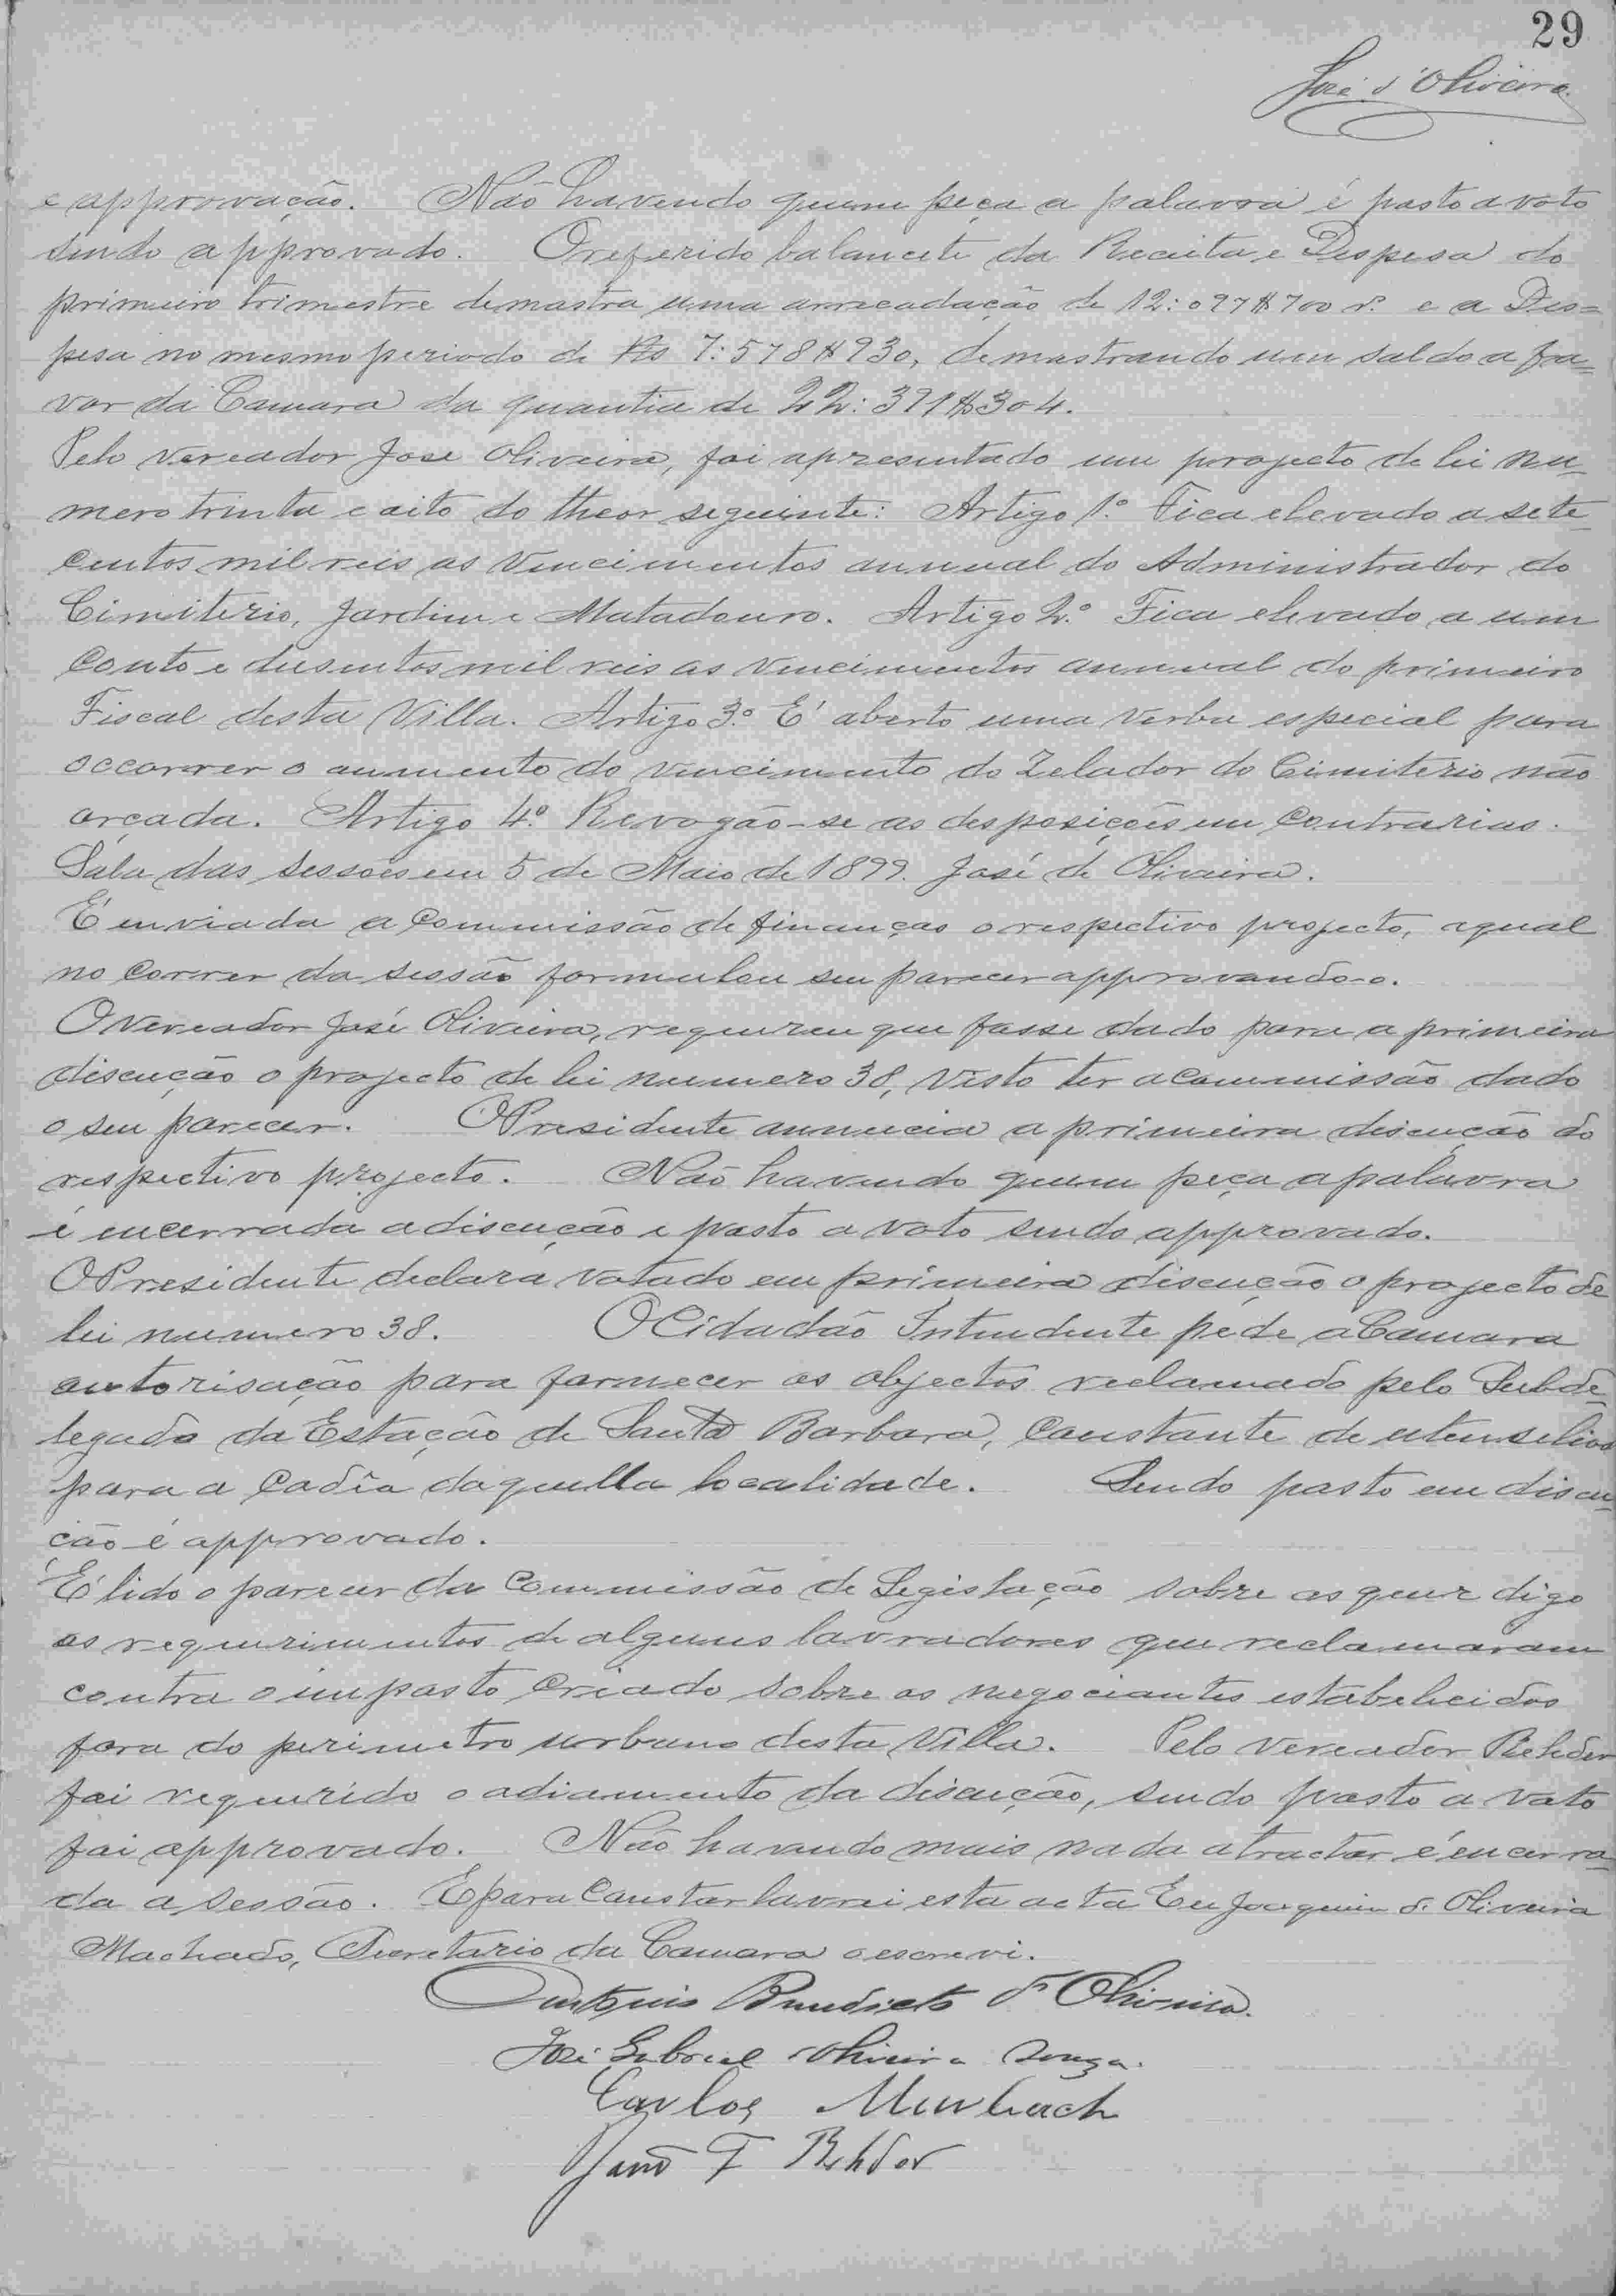 29
José d'Oliveira
e approvação. Não havendo quem peça a palavra é posto a voto
sendo approvado. O referido balancete da Receita e Despesa do
primeiro trimestre demostra uma arrecadação de 12:097$700 rs. e a Des=
pesa no mesmo periodo de Rs 7:578$930, demostrando um saldo a fa=
vor da Camara da quantia de 22:371$304.
Pelo vereador José Oliveira, foi apresentado um projecto de lei nu-
mero trinta e oito do theor seguinte: Artigo 1.º Fica elevado a sete
centos mil reis os vencimentos annual do Administrador do
Cimiterio, Jardim e Matadouro. Artigo 2.º Fica elevado a um
conto e dusentos mil reis os vencimentos annual do primeiro
Fiscal desta Villa. Artigo 3.º É aberto uma verba especial para
occorrer o aumento do vencimento do Zelador do Cimiterio não
orçada. Artigo 4.º Revogão-se as desposições em contrarias.
Sala das sessões em 5 de Maio de 1899. José de Oliveira.
É enviada a Commissão de finanças o respectivo projecto, a qual
no correr da sessão formulou seu parecer approvando-o.
O Vereador José Oliveira, requereu que fosse dado para a primeira
discução o projecto de lei numero 38, visto ter a Commissão dado
o seu parecer. O Presidente annuncia a primeira discução do
respectivo projecto. Não havendo quem peça a palavra
é encerrada a discução e posto a voto sendo approvado.
O Presidente declara votado em primeira discução o projecto de
lei numero 38. O Cidadão Intendente pede a Camara
autorisação para fornecer os objectos reclamado pelo Subde-
legado da Estação de Santa Barbara, constante de utensilios
para a Cadîa daquella localidade. Sendo posto em discu-
ção é approvado.
É lido o parecer da Commissão de Legislação sobre os quer digo
os requerimentos de alguns lavradores que reclamaram
contra o imposto criado sobre os negociantes estabelecidos
fora do perimetro urbano desta Villa. Pelo vereador Rehder
foi requerido o adiamento da discução, sendo posto a voto
foi approvado. Não havendo mais nada a tractar é encerra-
da a sessão. E para constar lavrei esta acta Eu Joaquim d. Oliveira
Machado, Secretario da Camara o escrevi.
Antonio Benedicto d' Oliveira.
José Gabriel Oliveira Souza.
Carlos
João F Rehder